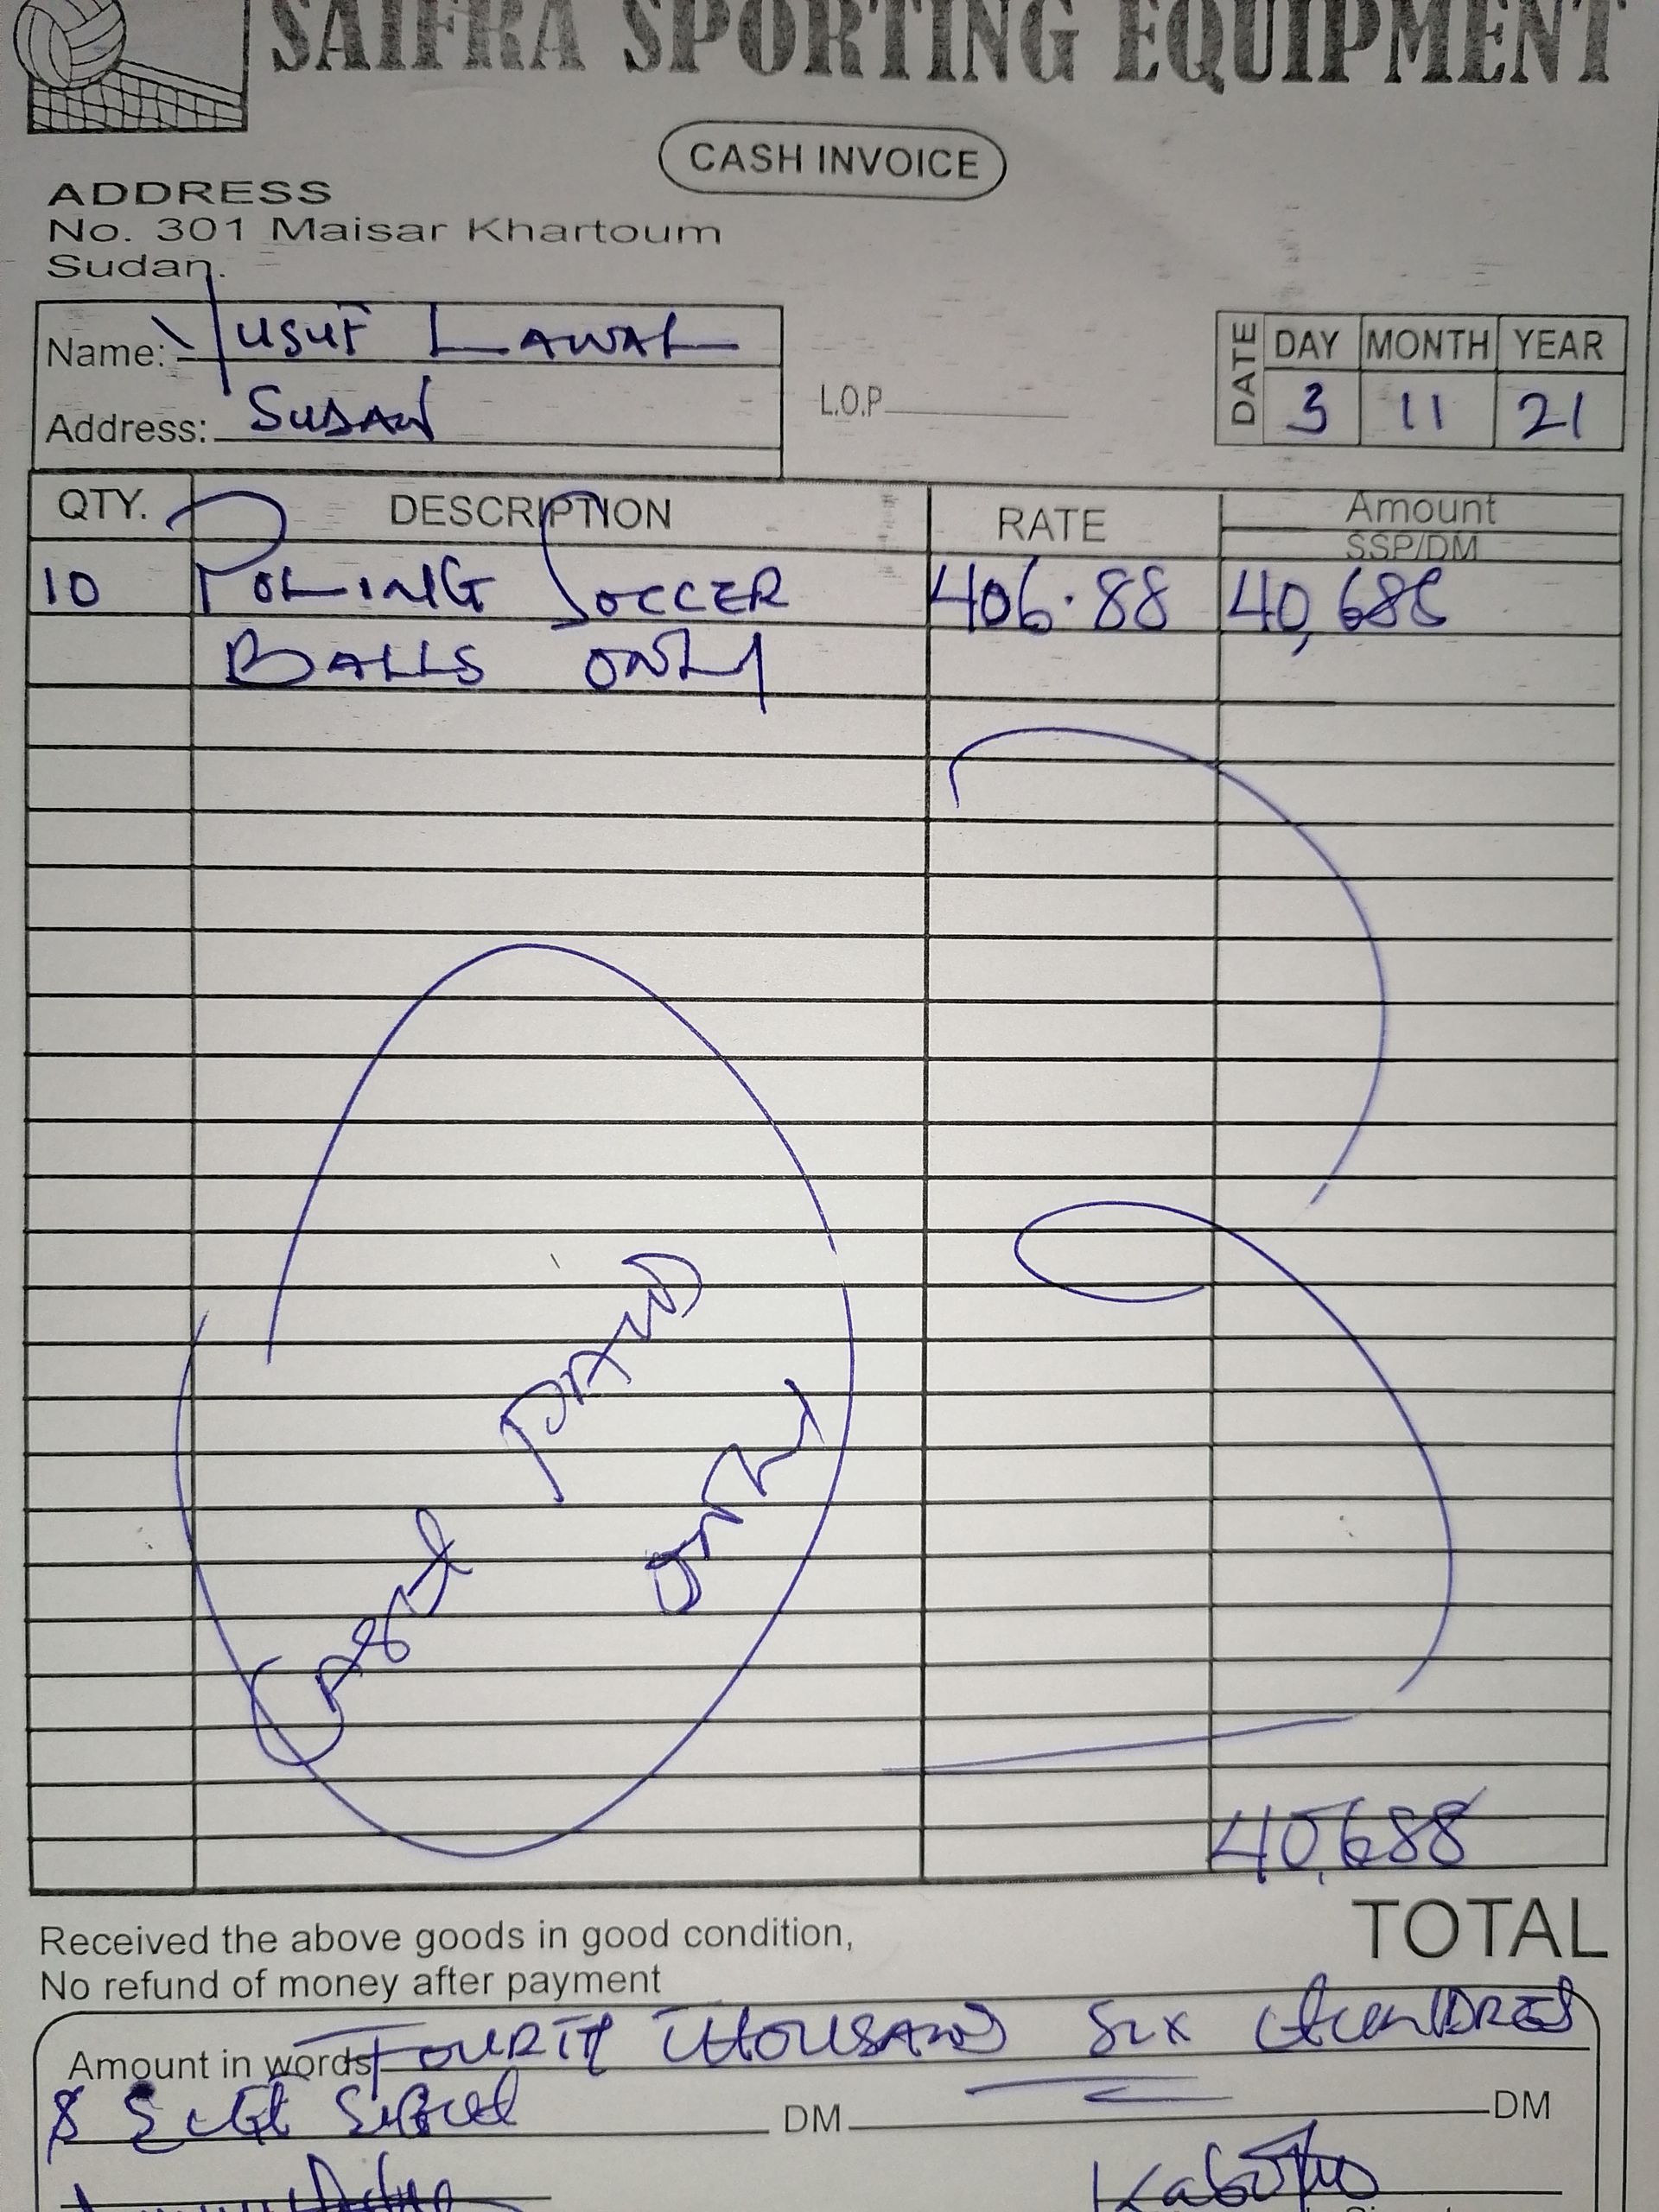 SAIFRA SPORTING EQUIPMENT
CASH INVOICE
ADDRESS
No. 301 Maisar Khartoum
Sudan.
Name: YUSUF LAWAL
Address: SUDAN
L.O.P
DATE DAY MONTH YEAR
3 11 21
QTY. DESCRIPTION RATE Amount
SSP/DM
10 POLING SOCCER 406.88 40,688
BALLS ONLY
PAID
ONLY
40,688
TOTAL
Received the above goods in good condition,
No refund of money after payment
Amount in words FOURTH THOUSAND SIX HUNDRED
DM DM